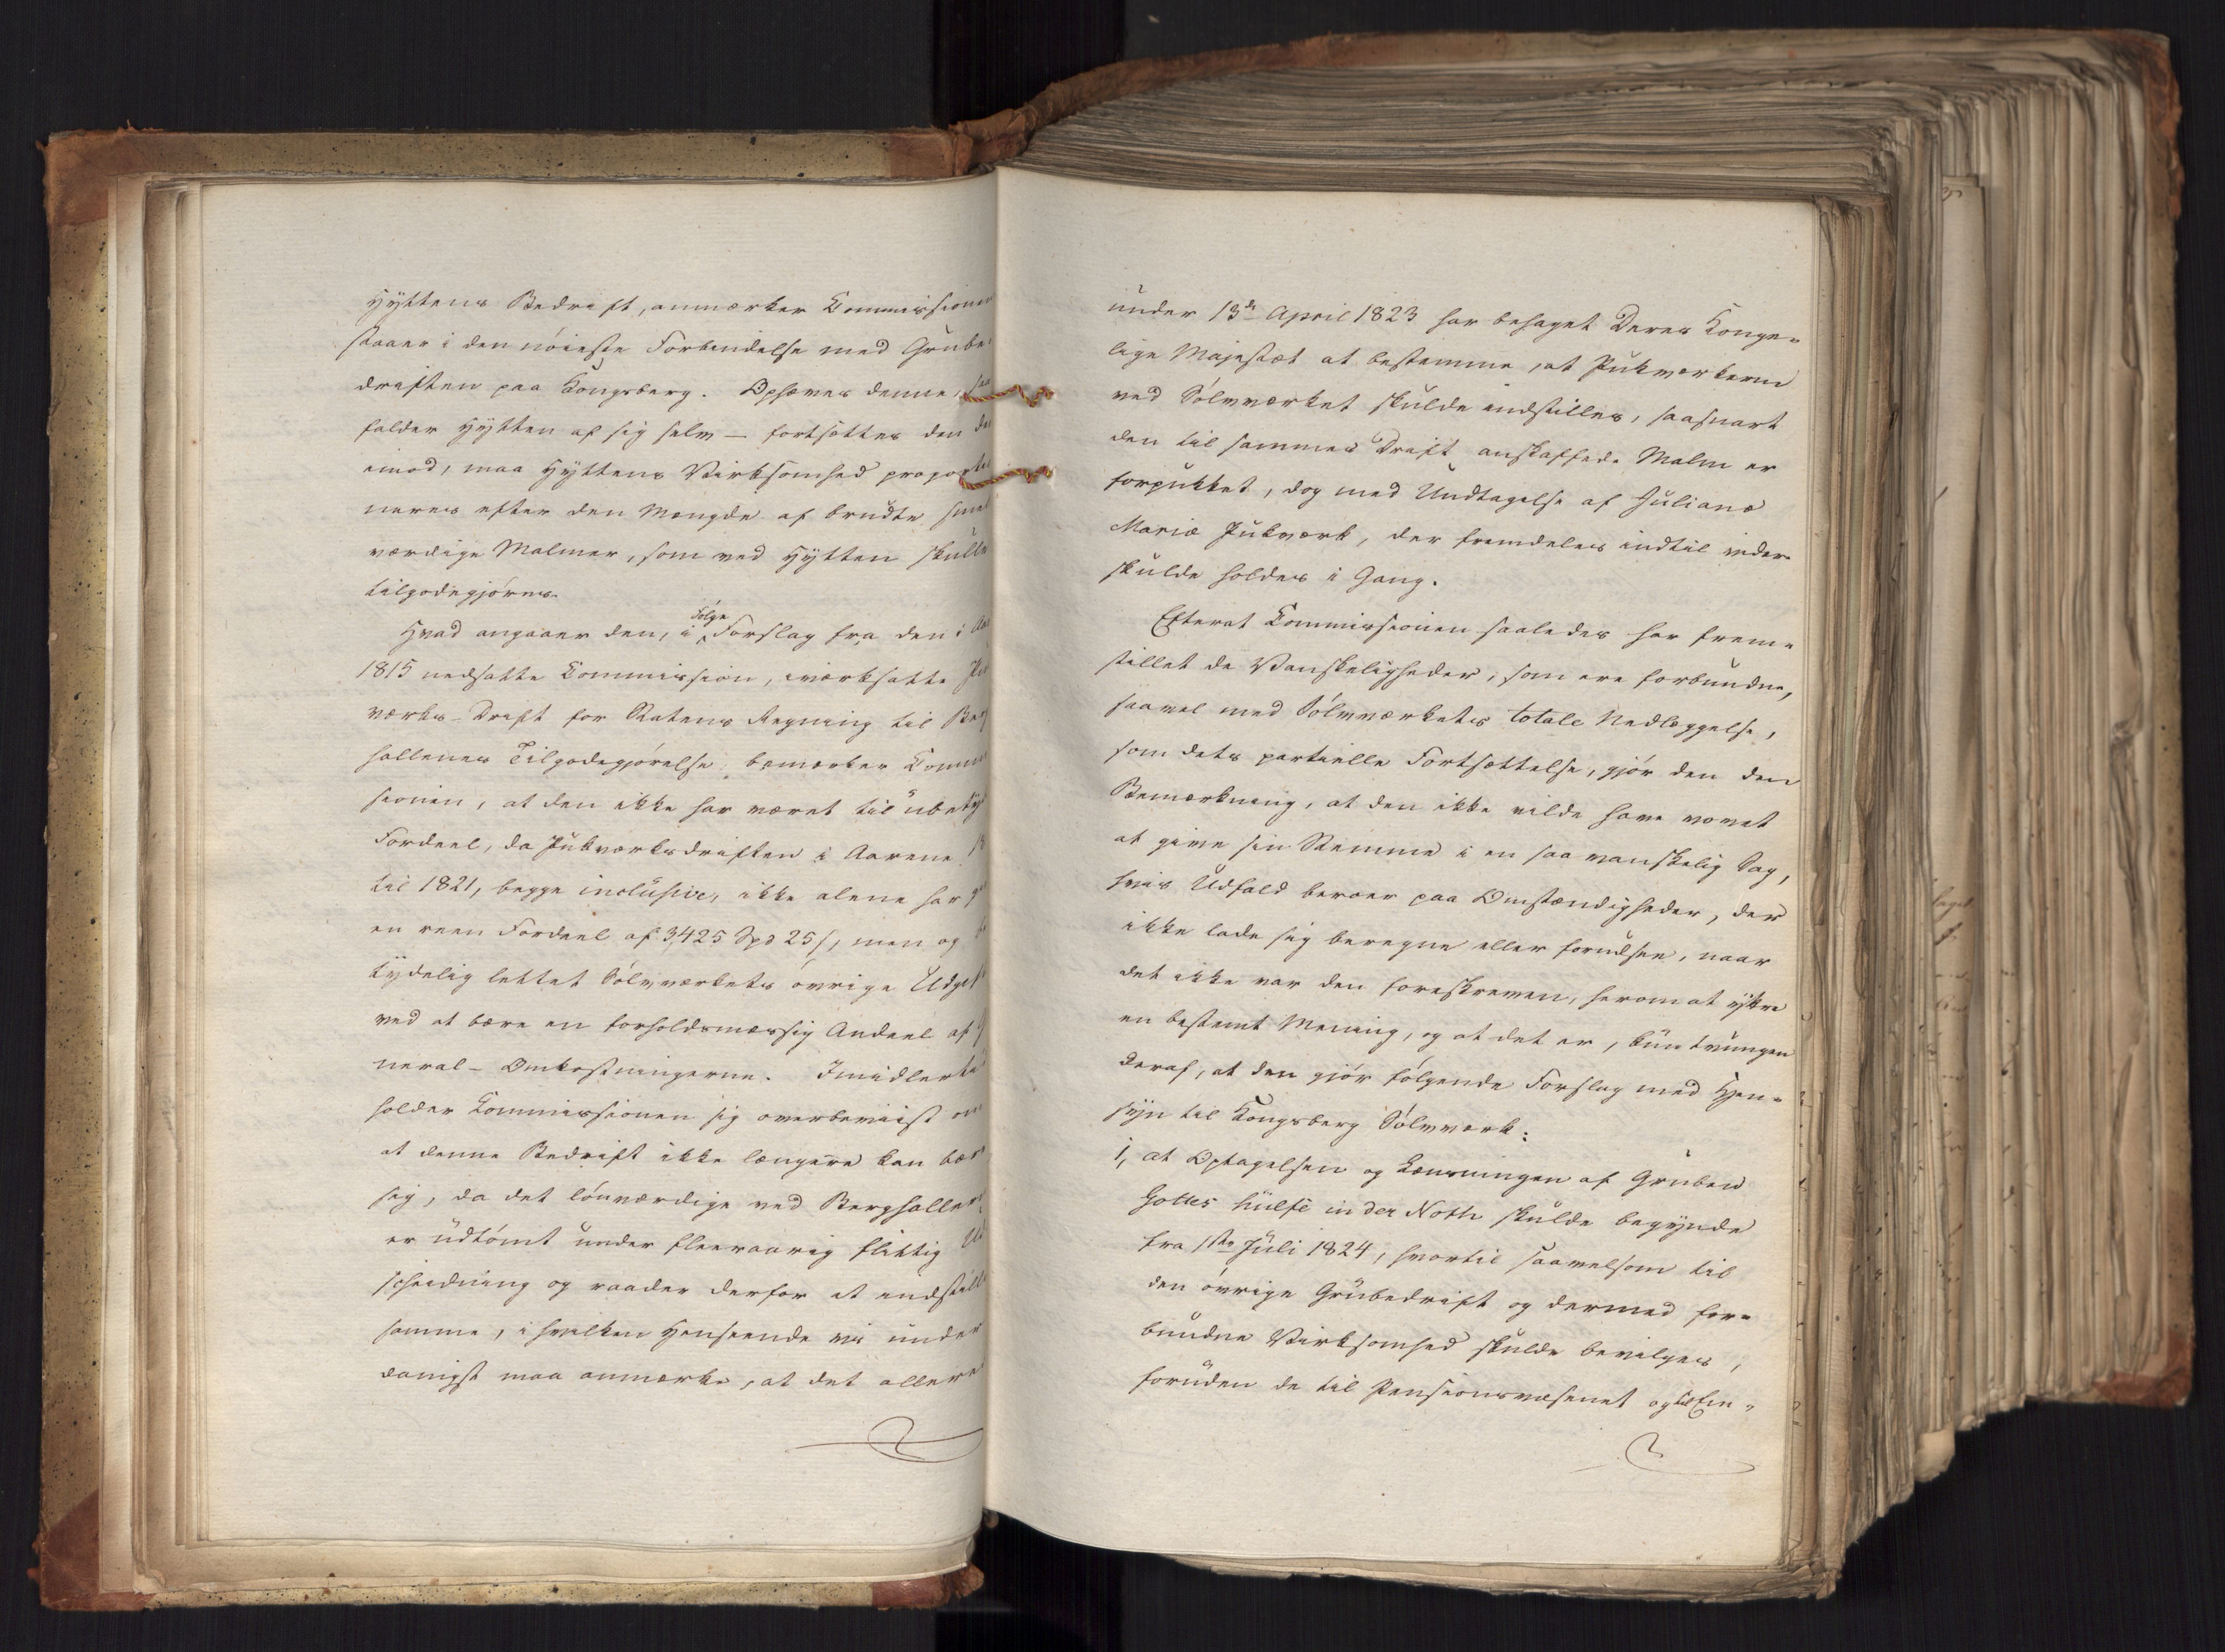 Hyttens Bedrift, anmærker Commissionen
staaer i den nöieste Forbindelse med Grube-
driften paa Kongsberg. Ophæves denne, saa
falder Hytten af sig selv — fortsættes den der
imod, maa Hyttens Virksomhed proportio
neres efter den Mængde af brudte smel
værdige Malmer, som ved Hytten skulle
tilgodegjöres.
Hvad angaaer den, i Fölge Forslag fra den i Aar
1815 nedsatte Commission, iværksatte Puk
værks-Drift for Statens Regning til Berg
hallenes Tilgodegjörelse, bemærker Commis
sionen, at den ikke har været til ubetyd
Fordeel, da Pukværksdriften i Aarene 18
til 1821, begge inclusive, ikke alene har gi
en reen Fordeel af 3,425 Spd 25 s, men og be
tydelig lettet Sölvværkets övrige Udgift
ved at bære en forholdsmæssig Andeel af G
neral-Omkostningerne. Imidlerti
holder Commissionen sig overbeviist om
at denne Bedrift ikke længere kan bære
sig, da det lönværdige ved Berghallen
er udtömt under fleeraarig flittig Ud
scheidning og raader derfor at indstille
samme, i hvilken Henseende vi under
danigst maa anmærke, at det allere
under 13de April 1823 har behaget Deres Konge-
lige Majestæt at bestemme, at Pukværkerne
ved Sölvværket skulde indstilles, saasnart
den til sammes Drift anskaffede Malm er
forpukket, dog med Undtagelse af Juliane
Mariæ Pukværk, der fremdeles indtil videre
skulde holdes i Gang.
Efterat Commissionen saaledes har frem-
stillet de Vanskeligheder, som ere forbundne,
saavel med Sölvværkets totale Nedlæggelse,
som dets partielle Fortsættelse, gjör den den
Bemærkning, at den ikke vilde have vovet
at give sin Stemme i en saa vanskelig Sag,
hvis Udfald beroer paa Omstændigheder, der
ikke lade sig beregne eller forudsee, naar
det ikke var den foreskreven, herom at yttre
en bestemt Mening, og at det er, kun tvungen
deraf, at den gjör fölgende Forslag med Hen-
syn til Kongsberg Sölvværk:
1, at Optagelsen og Lænsningen af Gruben
Gottes hülfe in der Noth skulde begynde
fra 1ste Juli 1824, hvortil saavelsom til
den övrige Grubedrift og dermed for-
bundne Virksomhed skulde bevilges,
foruden de til Pensionsvæsenet og til Em-